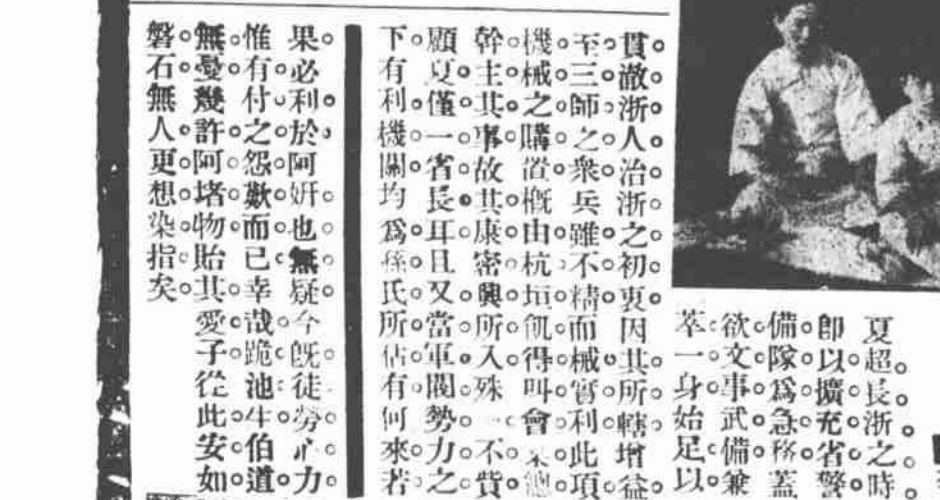 夏超長浙之時
卽以擴充省警
備隊爲急務蓋
欲文事武備兼
萃一身始足以
貫澈浙人治浙之初衷因其所轄增益
至三師之衆兵雖不精而械實利此項
機械之購置槪由杭垣
得叫會
總
幹主其事故其康密興所入殊
不貲
顧夏僅一省長耳且又當軍閥勢力之
下有利機關均爲孫氏所佔有何來若
果必利於阿姸也無疑今旣徒勞心力
惟有付之怨歎而已幸哉跪池生伯道
無憂幾許阿堵物貽其愛子從此安如
磐石無人更想染指矣